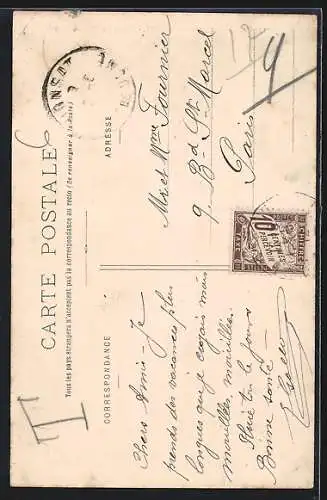 CARTE POSTALE
Tous les pays étrangers n'acceptent pas la correspondance au recto (Se renseigner à la Poste)
CORRESPONDANCE
ADRESSE
Chers Amis - Je
prends des vacances plus
longues que je croyais mais
mouillées, mouillées.
Pluie tous les jours
Bonne santé
Mr et Mme Fournier
9 Bd St Marcel
Paris
T
CHIFFRE
10
CENTIMES
A
PERCEVOIR
TAXE